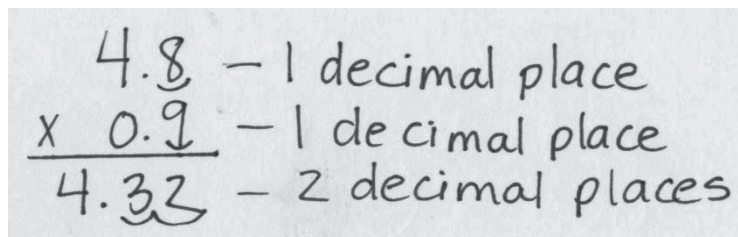 4.8 – 1 decimal place
x 0.9 – 1 decimal place
4.32 – 2 decimal places